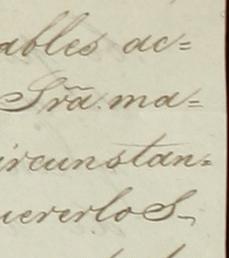 ables ac=
Sr̃a. ma=
ircunstan=
uererlo S-